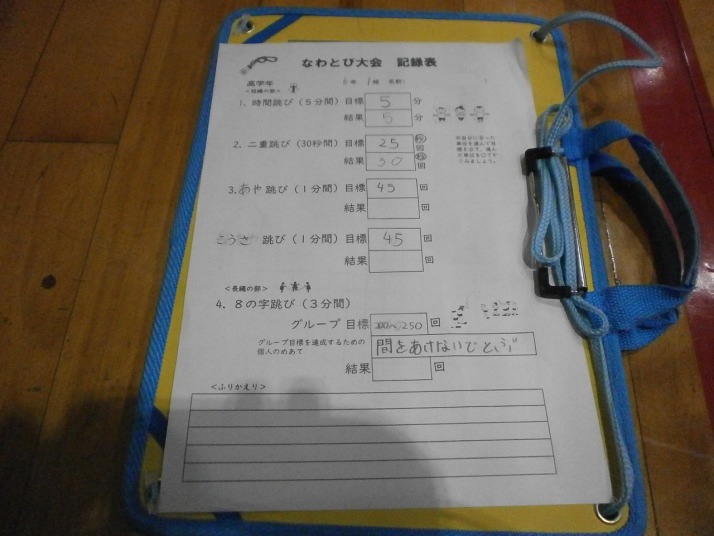 なわとび大会 記録表
高学年
6年 1組 名前(
<短縄の部>
1. 時間跳び(5分間)目標 5 分
結果 5 分
2. 二重跳び(30秒間)目標 25 秒 回
結果 30 回
3. あや 跳び(1分間)目標 45 回
結果 回
こうさ 跳び(1分間)目標 45 回
結果 回
<長縄の部>
4. 8の字跳び(3分間)
グループ 目標 250 回
グループ目標を達成するための
個人のめあて
間をあけないでとぶ
結果 回
<ふりかえり>